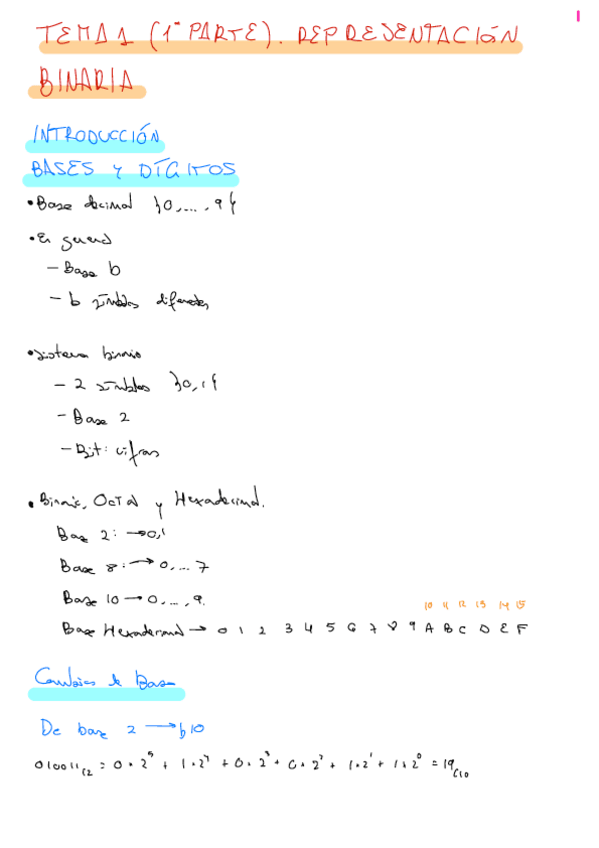 1
TEMA 1 (1ª PARTE). REPRESENTACIÓN
BINARIA
INTRODUCCIÓN
BASES Y DÍGITOS
• Base decimal }0,...,9{
• En general
- Base b
- b símbolos diferentes
• Sistema binario
- 2 símbolos }0,1{
- Base 2
- Bit: cifras
• Binario, Octal y Hexadecimal.
Base 2: → 0,1
Base 8: → 0,...7
Base 10 → 0,...,9.
10 11 12 13 14 15
Base Hexadecimal → 0 1 2 3 4 5 6 7 8 9 A B C D E F
Cambios de Base
De base 2 → b10
010011₍₂ = 0·2⁵ + 1·2⁴ + 0·2³ + 0·2² + 1·2¹ + 1·2⁰ = 19₍₁₀